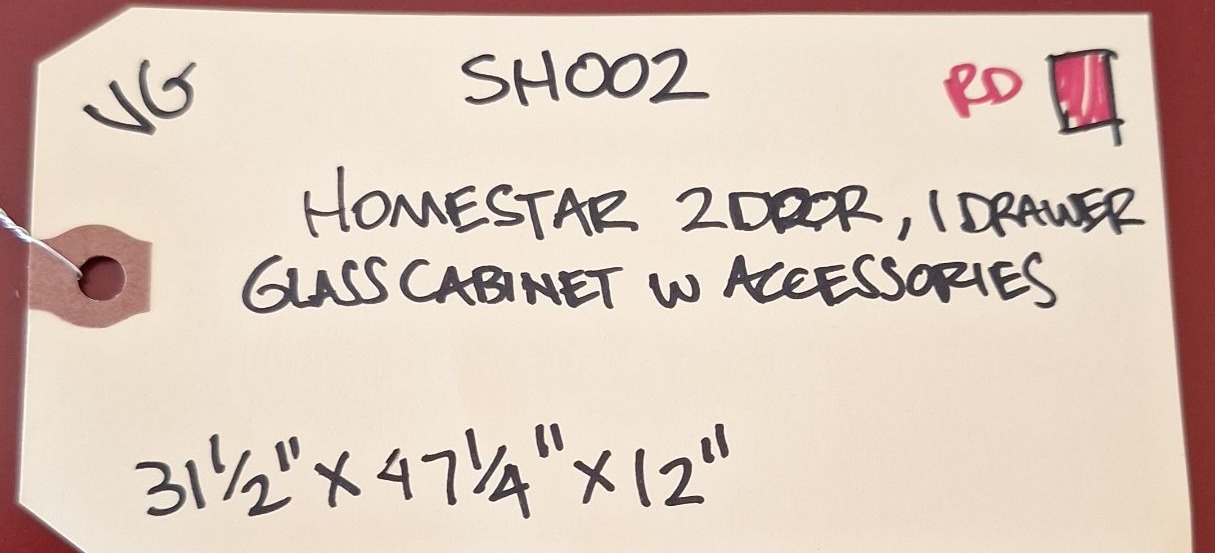 VG SH002 RD
HOMESTAR 2 DOOR, 1 DRAWER
GLASS CABINET W ACCESSORIES
31 1/2" X 47 1/4" X 12"